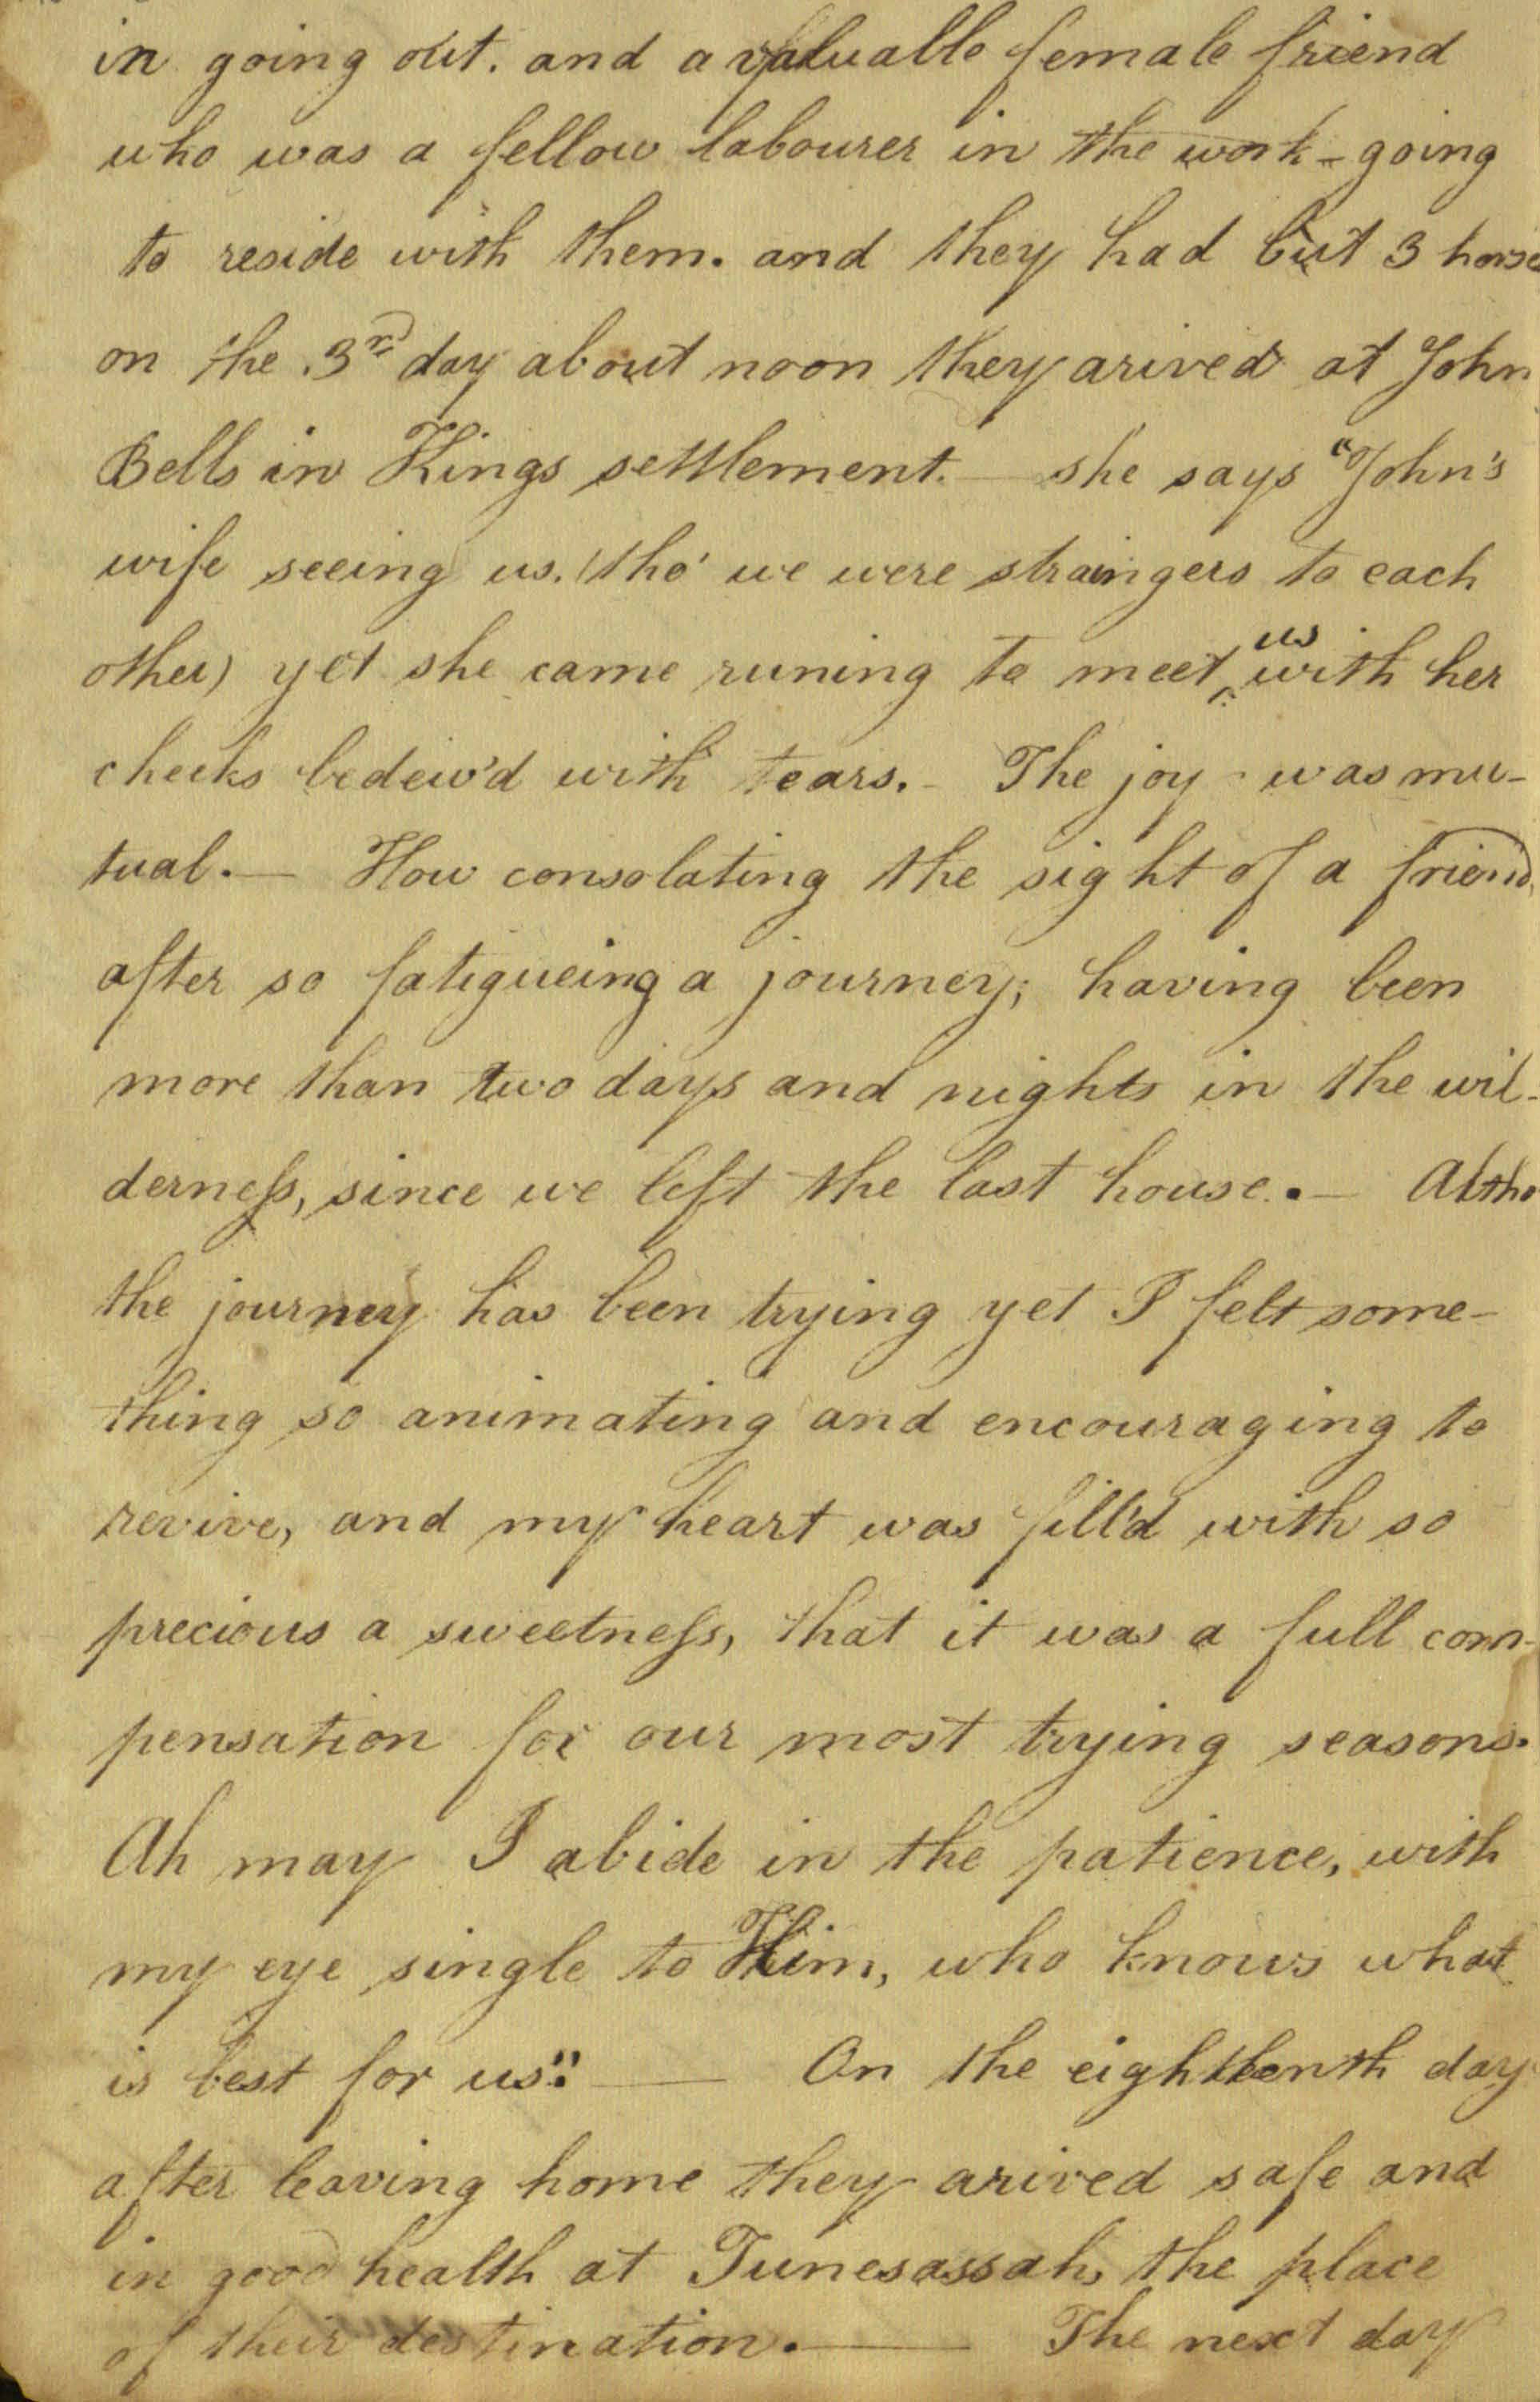 in going out. and a valuable female friend
who was a fellow labourer in the work - going
to reside with them. and they had but 3 horse
on the 3rd day about noon they arived at John
Bells in Kings settlement. — she says "John's
wife seeing us. (tho' we were straingers to each
other) yet she came runing to meet us with her
cheeks bedew'd with tears. - The joy was mu-
tual. — How consolating the sight of a friend
after so fatigueing a journey; having been
more than two days and nights in the wil-
derness, since we left the last house. — Altho
the journey has been trying yet I felt some-
thing so animating and encouraging to
revive, and my heart was fill'd with so
precious a sweetness, that it was a full com-
pensation for our most trying seasons.
Ah may I abide in the patience, with
my eye single to Him, who knows what
is best for us". — On the eighteenth day
after leaving home they arived safe and
in good health at Tunesassah, the place
of their destination. — The next day